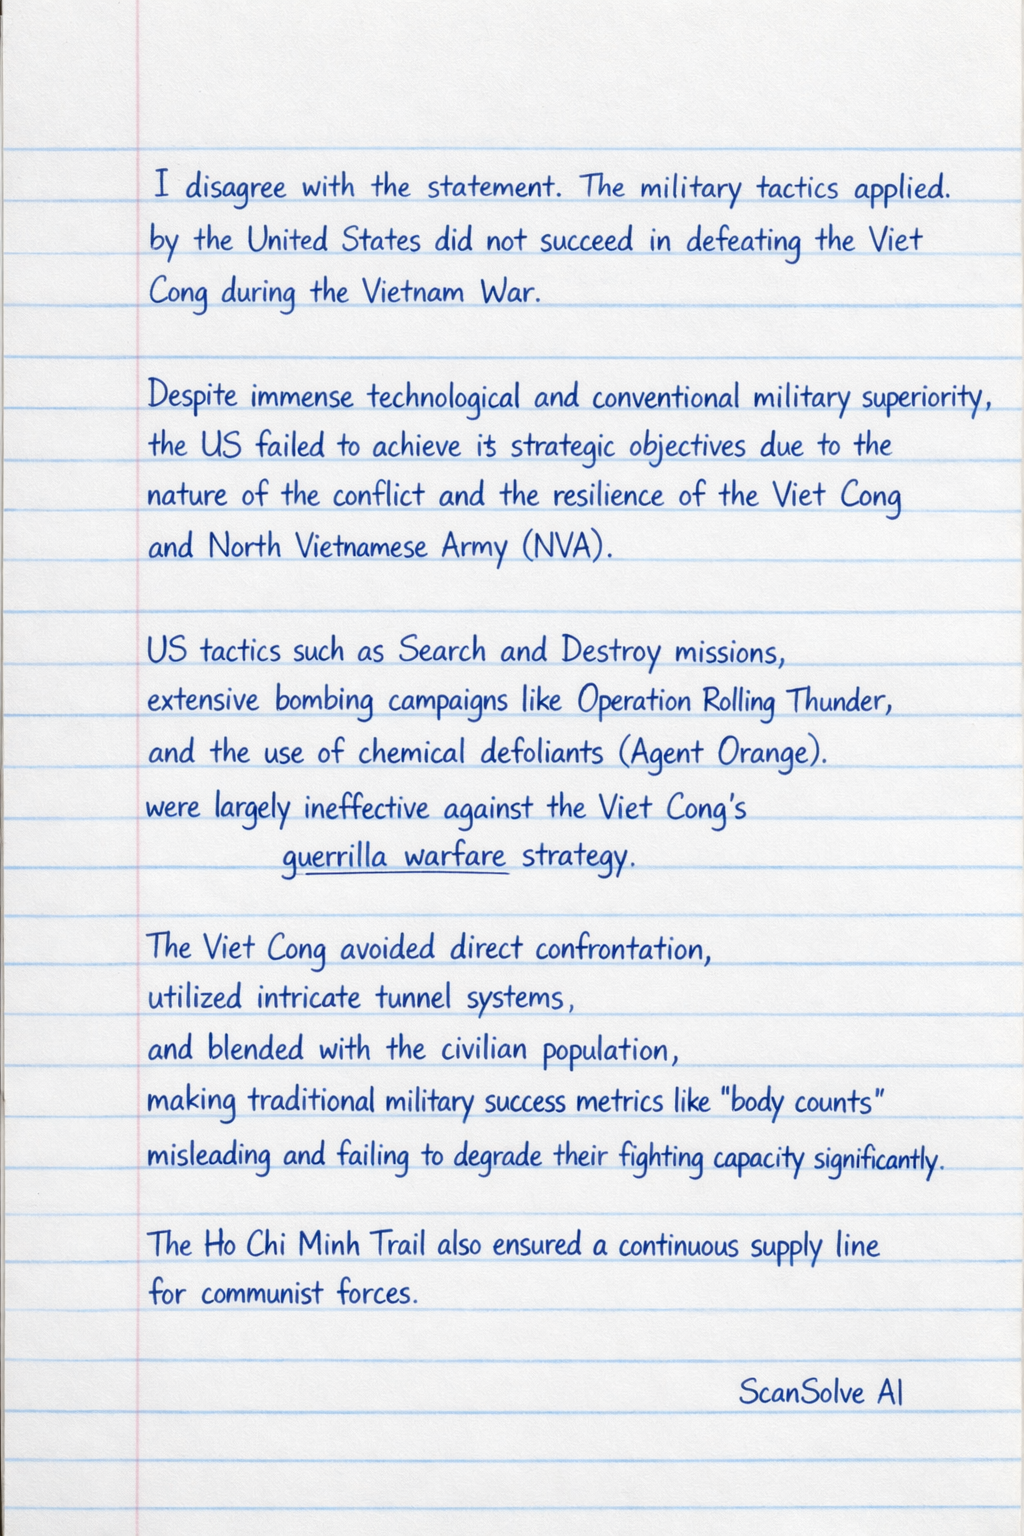 I disagree with the statement. The military tactics applied.
by the United States did not succeed in defeating the Viet
Cong during the Vietnam War.
Despite immense technological and conventional military superiority,
the US failed to achieve its strategic objectives due to the
nature of the conflict and the resilience of the Viet Cong
and North Vietnamese Army (NVA).
US tactics such as Search and Destroy missions,
extensive bombing campaigns like Operation Rolling Thunder,
and the use of chemical defoliants (Agent Orange).
were largely ineffective against the Viet Cong's
guerrilla warfare strategy.
The Viet Cong avoided direct confrontation,
utilized intricate tunnel systems,
and blended with the civilian population,
making traditional military success metrics like "body counts"
misleading and failing to degrade their fighting capacity significantly.
The Ho Chi Minh Trail also ensured a continuous supply line
for communist forces.
ScanSolve AI